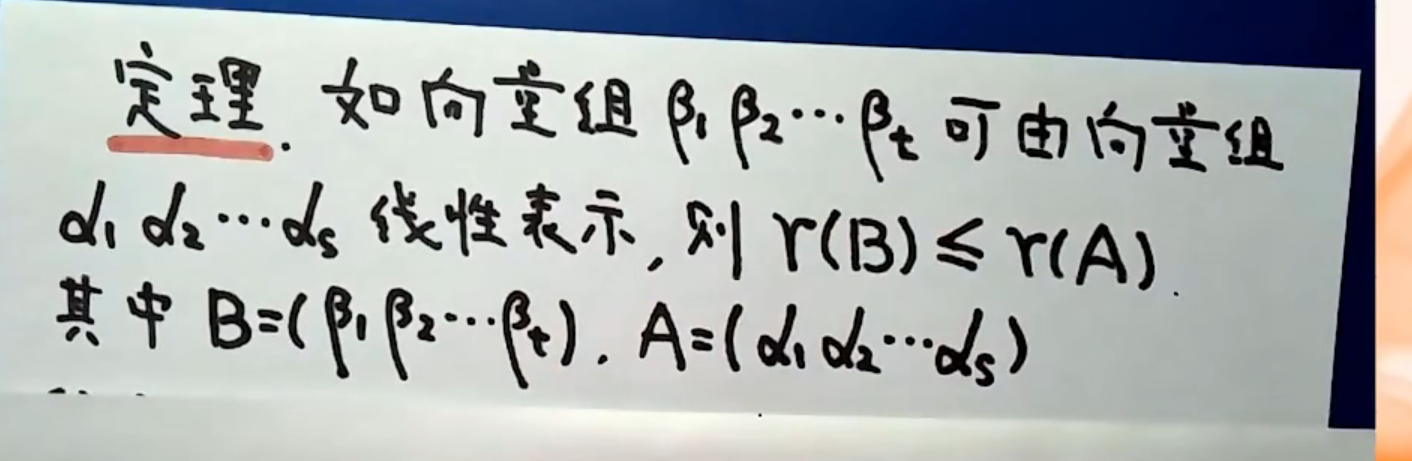 定理. 如向量组 β₁ β₂ ⋯ βₜ 可由向量组
α₁ α₂ ⋯ αₛ 线性表示, 则 r(B) ≤ r(A).
其中 B=(β₁ β₂ ⋯ βₜ). A=(α₁ α₂ ⋯ αₛ)